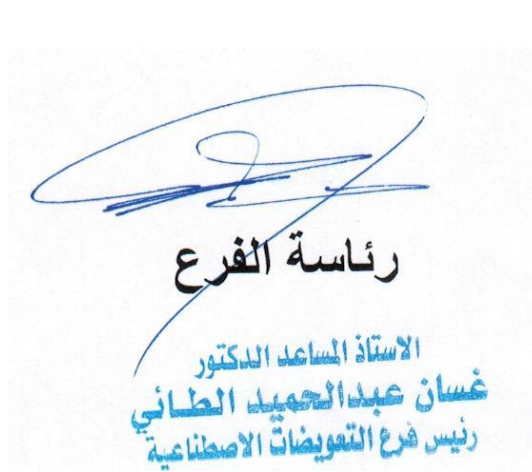 رئاسة الفرع
الاستاذ المساعد الدكتور
غسان عبدالحميد الطائي
رئيس فرع التعويضات الاصطناعية